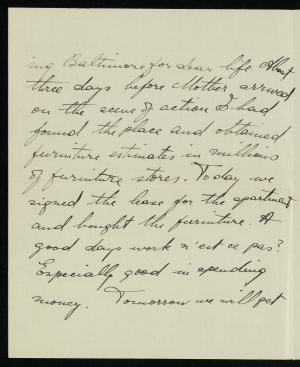 ing Baltimore for dear life. About
three days before Mother arrived
on the scene of action I had
found the place and obtained
furniture estimates in millions
of furniture stores. Today we
signed the lease for the apartment
and bought the furniture. A
good days work n'est ce pas?
Especially good in spending
money. Tomorrow we will get